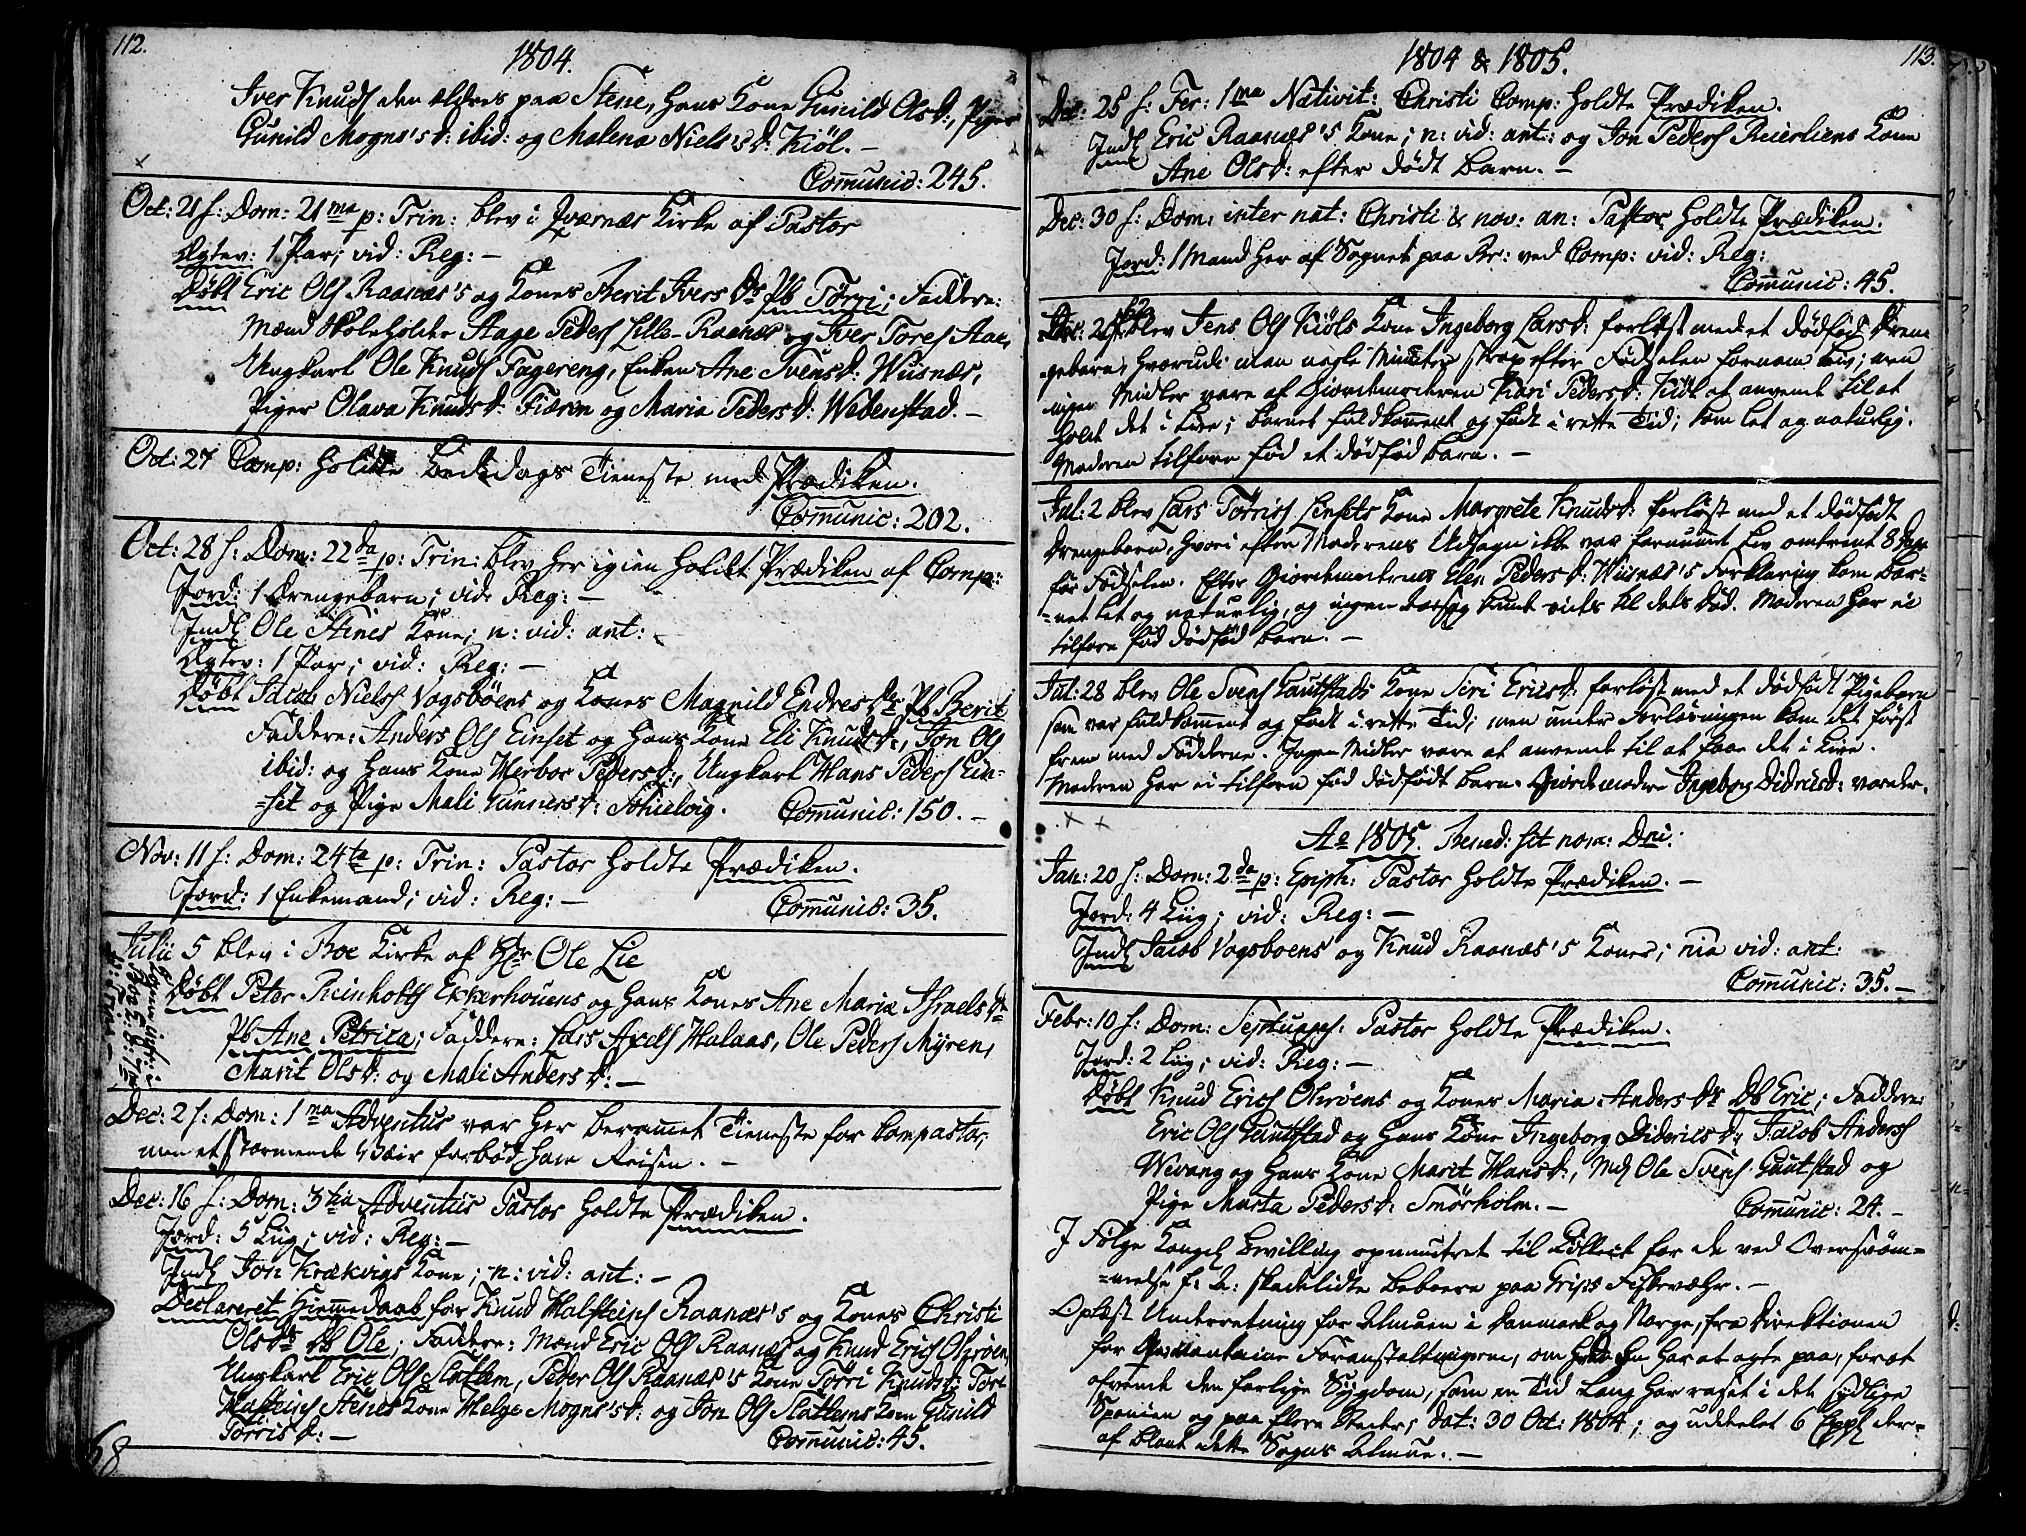 112.
1804.
Iver Knuds den ældres paa Stene, hans Kone Gunild Olsd:, Piger
Gunild Mogns'sd: ibid: og Malena Niels'sd: Kiöl. -
Comunic: 245.
Oct: 21 f: Dom: 21ma p: Trin: blev i Qværnæs Kirke af Pastor
Egtev: 1 Par; vid: Reg: -
Döbt Eric Ols Raanæs's og Kones Berit Ivers Dr Pb Törri; Faddere:
Mænd Skoleholder Aage Peders Lille-Raanæs og Iver Tores Aae,
Ungkarl Ole Knuds Fagereng, Enken Ane Svensd: Wiisnæs,
Piger Olava Knudsd: Fiærin og Maria Pedersd: Webenstad. -
Oct: 27 Comp: holdte Bededags Tieneste med Prædiken.
Comunic: 202.
Oct: 28 f: Dom: 22da p: Trin: blev her igien holdt Prædiken af Comp:
Jord: 1 Drengebarn; vid: Reg: -
Indl Ole Stines Kone; n: vid: ant: -
Egtev: 1 Par; vid: Reg: -
Döbt Jacob Niels Vogsböens og Kones Magnild Endres Dr Pb Berit
Faddere: Anders Ols Einset og hans Kone Eli Knudsd:, Jon Ols
ibid: og hans Kone Herbor Pedersd:, Ungkarl Hans Peders Ein-
=set og Pige Mali Gunnersd: Skielvig. Comunic: 150. -
Nov: 11 f: Dom: 24ta p: Trin: Pastor holdte Prædiken.
Jord: 1 Enkemand; vid: Reg: - Comunic: 35.
Julii 5 blev i Boe Kirke af Hr Ole Lie
Döbt Peter Reinholts Ekkerhouens og hans Kones Ane Maria Israels Dr
Pb Ane Petrica; Faddere: Lars Axels Halaas, Ole Peders Myren,
Marit Olsd: og Mali Andersd: -
Dec: 2 f: Dom: 1ma Adventus var her berammet Tieneste for Compastor,
men et stormende Væir forbød ham Reisen. -
Dec: 16 f: Dom: 3tia Adventus Pastor holdte Prædiken.
Jord: 5 Liig; vid: Reg: -
Indl Jon Krækvigs Kone; n: vid: ant: -
Declareret Hiemmedaab for Knud Halsteins Raanæs's og Kones Christi
Olsdr Db Ole; Faddere: Mænd Eric Ols Raanæs og Knud Erics Ohröen,
Ungkarl Eric Ols Slatlem, Peder Ols Raanæs's Kone Törri Knudsd: Tore
Halsteins Stenes Kone Helge Mogns'sd: og Jon Ols Slatlems Kone Gunild
Törrisd: - Comunic: 45.
68
113.
1804 & 1805.
Dec: 25 f: Fer: 1ma Nativit: Christi Comp: holdte Prædiken.
Indl Eric Raanæs's Kone; n: vid: ant: og Jon Peders Reierliens Kone
Ane Olsd: efter dødt Barn. -
Dec: 30 f: Dom: inter nat: Christi & nov: an: Pastor holdte Prædiken.
Jord: 1 Mand her af Sognet paa Br: ved Comp: vid: Reg:
Comunic: 45.
blev Jens Ols Kiöls Kone Ingeborg Larsd: forløst med et dødfødt Dren-
gebarn, hvorudi man nogle Minuter strax efter Fødselen fornam Liv; men
ingen Midler vare af Giordemoderen Kari Pedersd: Kiöl at anvende til at
holde det i Live; Barnet fuldkommet og født i rette Tid; kom let og naturlig.
Moderen tilforn fød et dødfød Barn. -
Jul: 2 blev Lars Törriss Linsets Kone Margrete Knudsd: forløst med et dødfødt
Drengebarn, hvori efter Moderens Udsagn ikke var fornummet Liv omtrent 8 Dage
før Fødselen. Efter Giordemoderens Elen Pedersd: Wiisnæs's Forklaring kom Bar-
=net let og naturlig, og ingen Aarsag kunde vides til dets Død. Moderen har ei
tilforn fød dødfød Barn. -
Jul: 28 blev Ole Svens Gautstads Kone Siri Ericsd: forløst med et dødfødt Pigebarn
som var fuldkommet og født i rette Tid; men under Forløsningen kom det først
frem med Fødderne. Ingen Midler vare at anvende til at faae det i Live.
Moderen har ei tilforn fød dødfødt Barn. Giordemodere Ingeborg Didricsd: var der.
Ao 1805. Bened: sit nom: Dni:
Jan: 20 f: Dom: 2da p: Epiph: Pastor holdte Prædiken. -
Jord: 4 Liig; vid: Reg: -
Indl Jacob Vogsboens og Knud Raanæs's Koner; nia vid: ant:
Comunic: 35. -
Febr: 10 f: Dom: Septuages: Pastor holdte Prædiken.
Jord: 2 Liig; vid: Reg: -
Döbt Knud Erics Ohröens og Kones Maria Anders Dr Db Eric; Faddere:
Eric Ols Gautstad og hans Kone Ingeborg Didericsd:, Jacob Anders
Wevang og hans Kone Marit Hansd:, Md Ole Svens Gautstad og
Pige Marta Pedersd: Smörholm. - Comunic: 24. -
I Følge Kongel Bevilling opmuntret til Collect for de ved Oversvøm-
=melse f: A: skadelidte Beboere paa Grips Fiskevæhr. -
Oplæst Underretning for Almuen i Danmark og Norge, fra Direktionen
for Qvarantaine Foranstaltningerne, om hvad En har at agte paa, for at
afvende den farlige Sygdom, som en Tid lang har raset i det sydlige
Spanien og paa flere Steder, dat: 30 Oct: 1804; og uddelet 6 Expl der-
af blant dette Sogns Almue. -